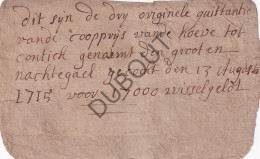 dit sijn de dry originele quittantie
vande coopprijs vande hoeve tot
contich genaemt den grooten
nachtegael gecocht den 13 Augusti
1715 voor 7000 wisselgelt
DUBOUT